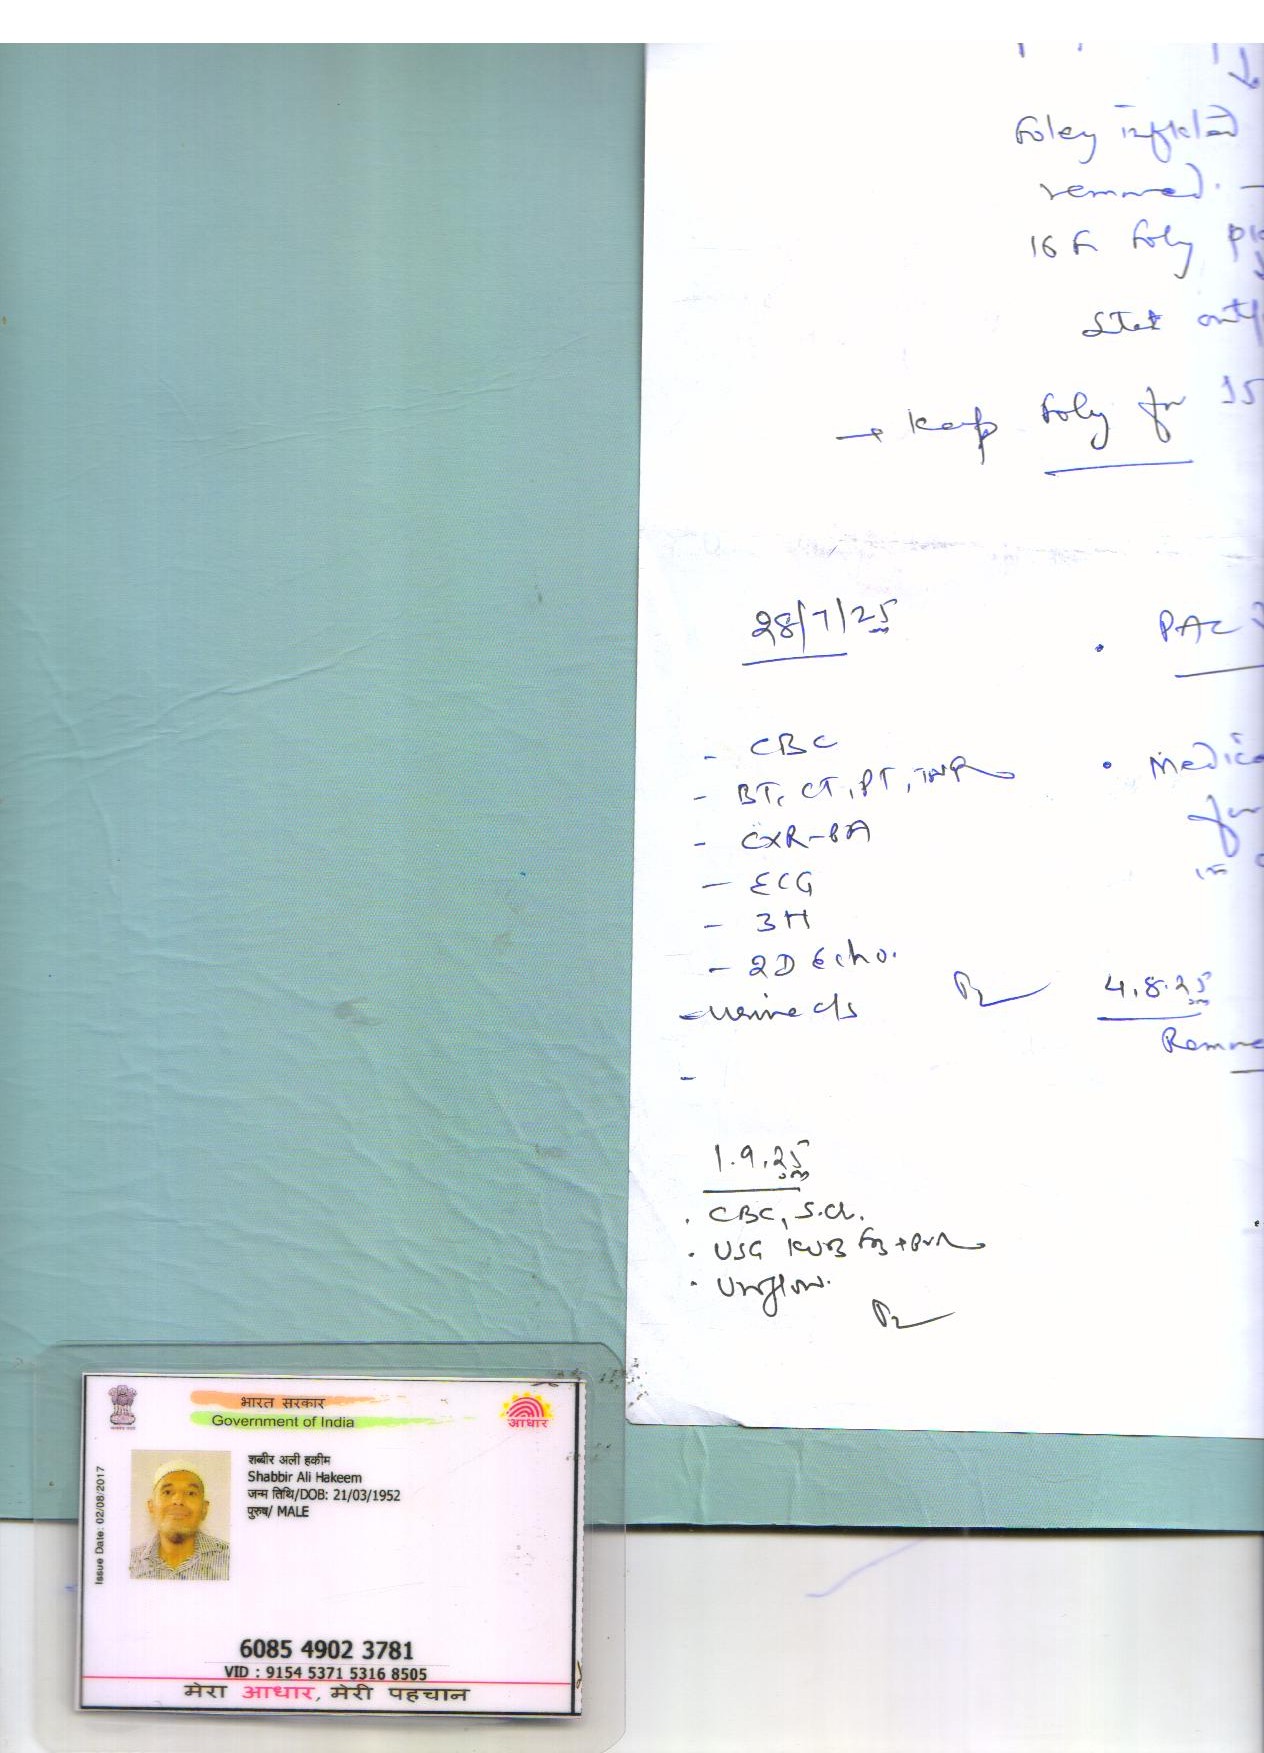 Foley inflated
removed. —
16 Fr Foley
Stat
→ Keep Foley for 15
28/7/25
- CBC
- BT, CT, PT, INR
- CXR-PA
- ECG
- 3H
- 2D Echo.
- urine c/s
-
• PAC
• Medica
for
in
4.8.25
Remove
1.9.25
. CBC, S.Cr.
. USG KUB +PVR
. Uroflow.
भारत सरकार
Government of India
आधार
Issue Date: 02/08/2017
शब्बीर अली हकीम
Shabbir Ali Hakeem
जन्म तिथि/DOB: 21/03/1952
पुरुष/ MALE
6085 4902 3781
VID : 9154 5371 5316 8505
मेरा आधार, मेरी पहचान